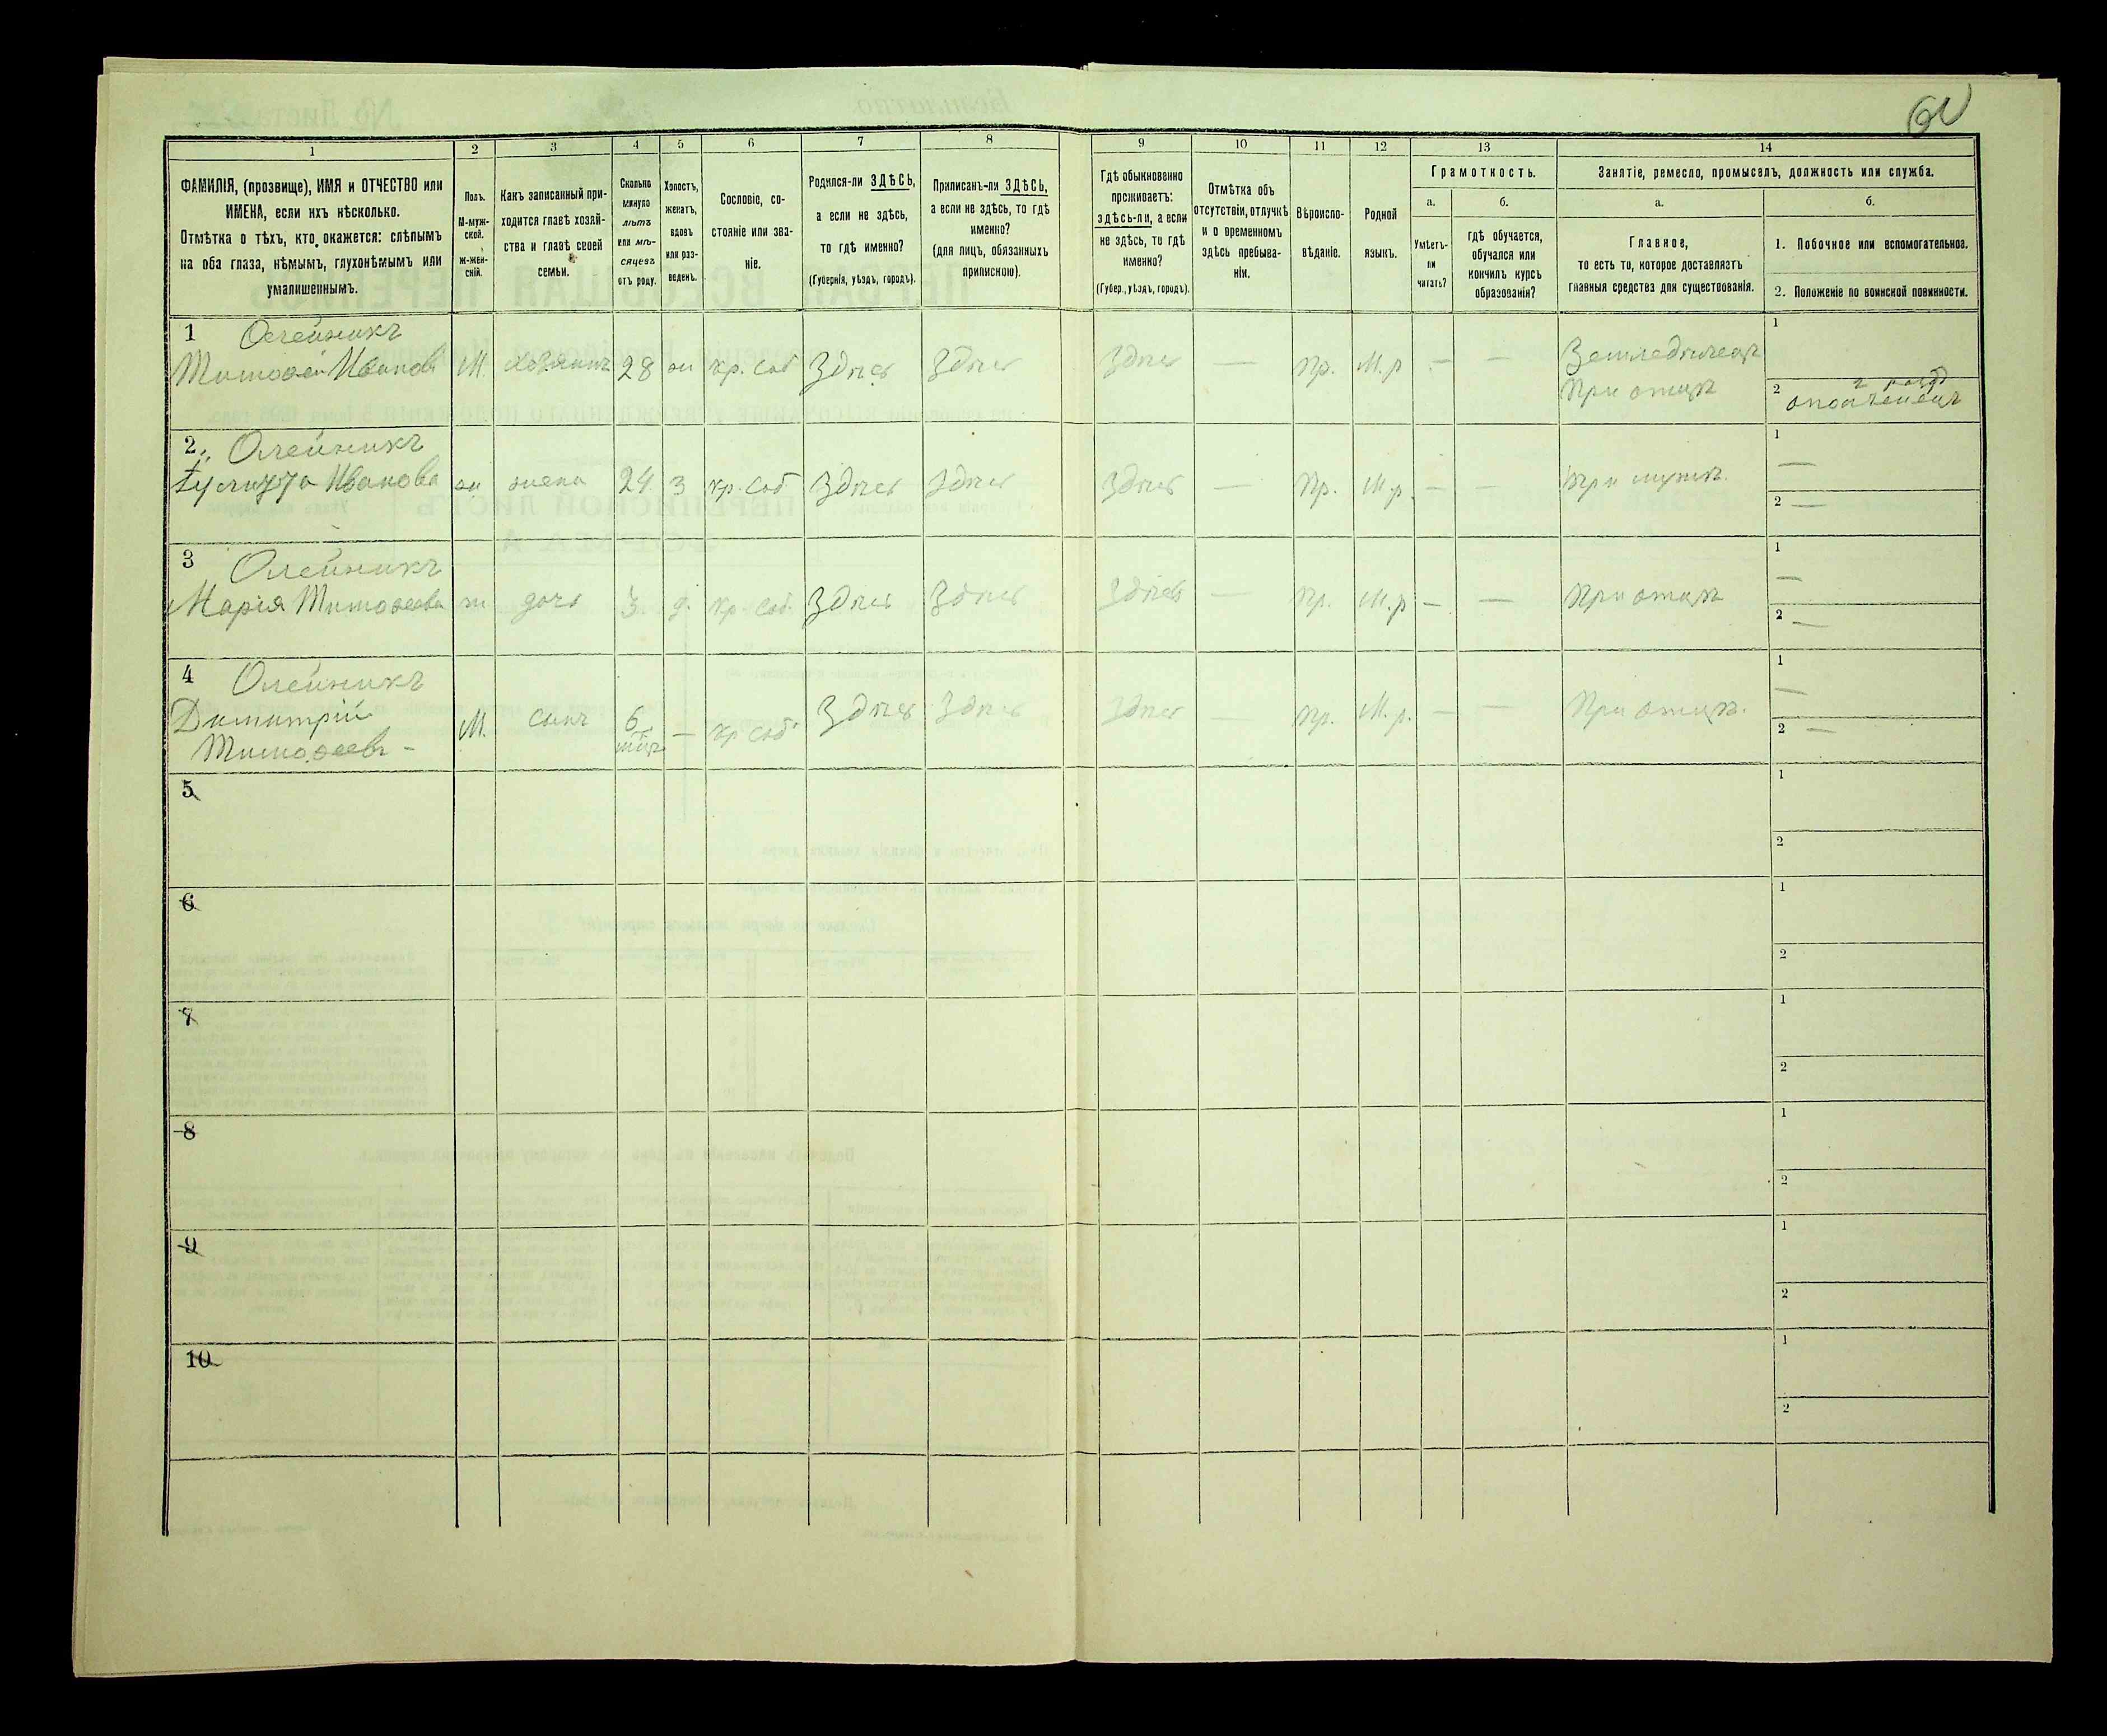 60
1
2
3
4
5
6
7
8
9
10
11
12
13
14
ФАМИЛІЯ, (прозвище), ИМЯ и ОТЧЕСТВО или
ИМЕНА, если ихъ нѣсколько.
Отмѣтка о тѣхъ, кто окажется: слѣпымъ
на оба глаза, нѣмымъ, глухонѣмымъ или
умалишеннымъ.
Полъ.
М-муж-
ской.
Ж-жен-
скій.
Какъ записанный при-
ходится главѣ хозяй-
ства и главѣ своей
семьи.
Сколько
минуло
лѣтъ
или мѣ-
сяцевъ
отъ роду.
Холостъ,
женатъ,
вдовъ
или раз-
веденъ.
Сословіе, со-
стояніе или зва-
ніе.
Родился-ли ЗДѢСЬ,
а если не здѣсь,
то гдѣ именно?
(Губернія, уѣздъ, городъ).
Приписанъ-ли ЗДѢСЬ,
а если не здѣсь, то гдѣ
именно?
(для лицъ, обязанныхъ
припискою).
Гдѣ обыкновенно
проживаетъ:
здѣсь-ли, а если
не здѣсь, то гдѣ
именно?
(Губер., уѣздъ, городъ).
Отмѣтка объ
отсутствіи, отлучкѣ
и о временномъ
здѣсь пребыва-
ніи.
Вѣроиспо-
вѣданіе.
Родной
языкъ.
Грамотность.
а.
Умѣетъ-
ли
читать?
б.
гдѣ обучается,
обучался или
кончилъ курсъ
образованія?
Занятіе, ремесло, промыселъ, должность или служба.
а.
Главное,
то есть то, которое доставляетъ
главныя средства для существованія.
б.
1. Побочное или вспомогательное.
2. Положеніе по воинской повинности.
1 Олейникъ
Тимоѳей Ивановъ М. хозяинъ 28 ж кр. соб Здѣсь Здѣсь Здѣсь — Пр. М.р — — Земледѣлецъ 1
При отцѣ 2 2 разр
ополченецъ
2 Олейникъ 1
Ивановa ж жена 24 З кр. соб Здѣсь Здѣсь Здѣсь — Пр. М.р. — — При мужѣ. —
2 —
3 Олейникъ 1
Марія Тимоѳеева ж. дочь 3. д. кр. соб. Здѣсь Здѣсь Здѣсь — Пр. М.р — — При отцѣ —
2 —
4 Олейникъ 1
Димитрій —
Тимоѳеевъ - М. сынъ 6 мѣц — кр соб. Здѣсь Здѣсь Здѣсь — Пр. М.р. — — При отцѣ. 2 —
5 1
2
6 1
2
7 1
2
8 1
2
9 1
2
10 1
2